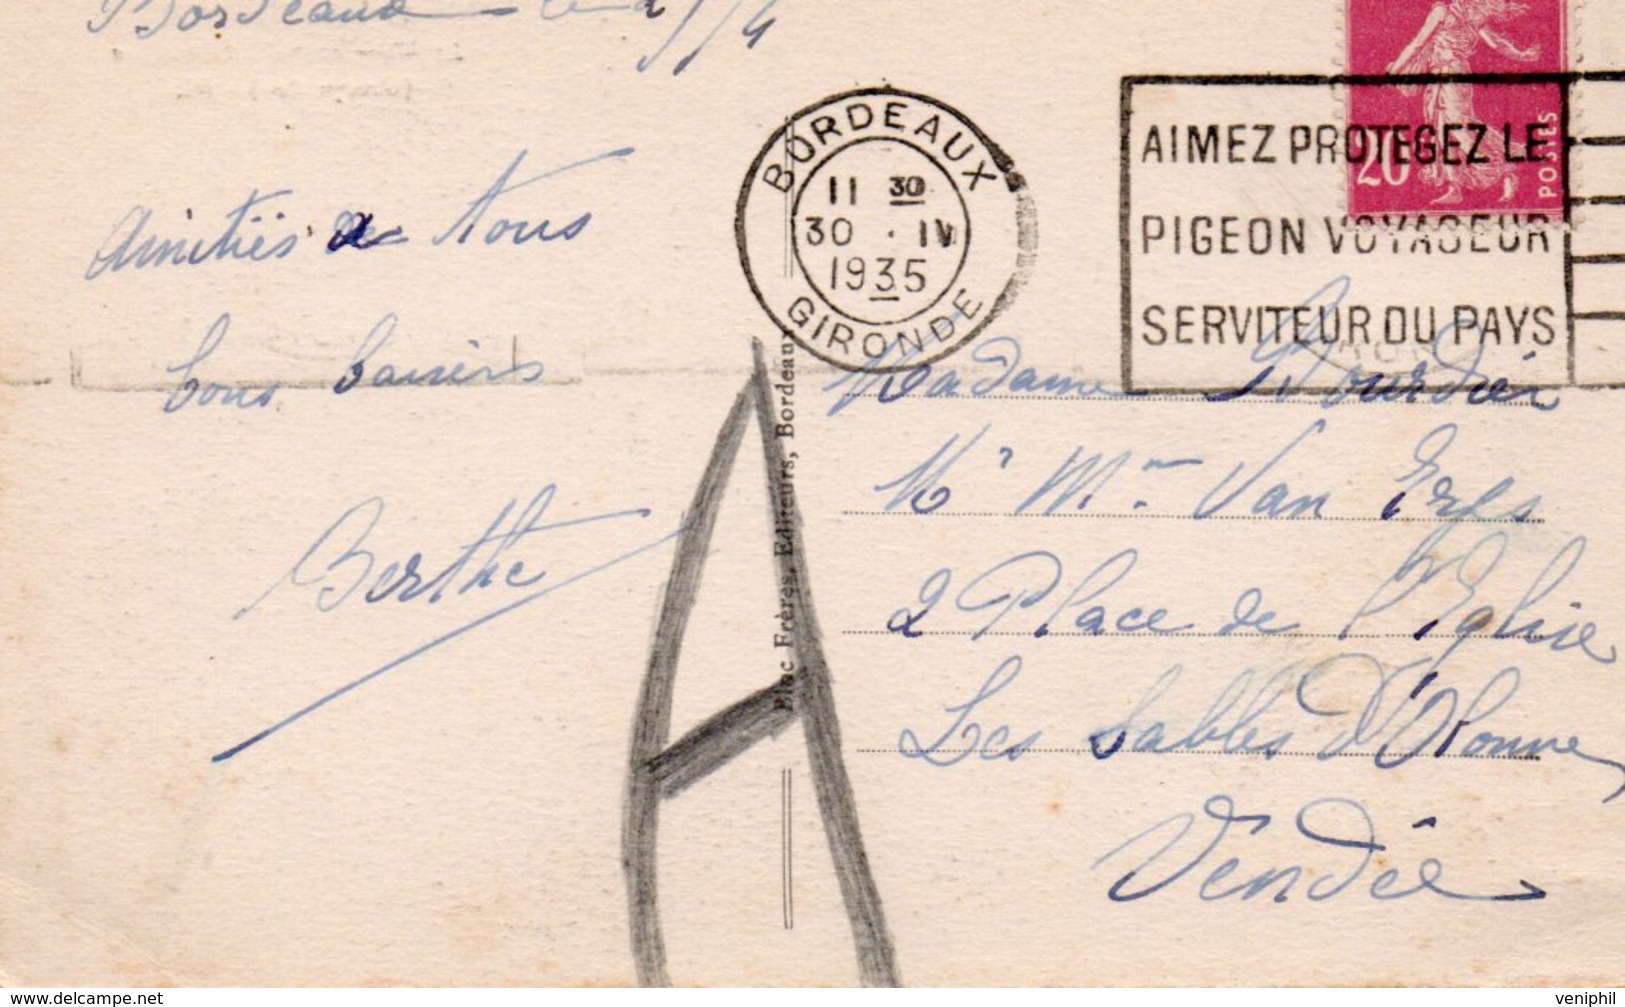 Bordeaux le
Amitiés a tous
bons baisers
Berthe
BORDEAUX
11 30
30 · IV
1935
GIRONDE
AIMEZ PROTEGEZ LE
PIGEON VOYAGEUR
SERVITEUR DU PAYS
20
POSTES
Frères, Editeurs, Bordeaux
A
Madame Bourdier
Mr Mme Van Erps
2 Place de l'Eglise
Les Sables d'Olonne
Vendée
www.delcampe.net
veniphil